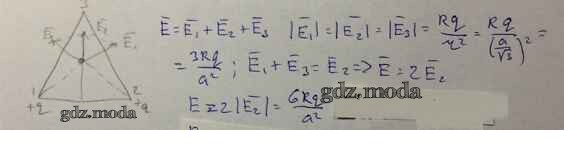 3
E̅₁ E̅₂ E̅₁
1 2
+q +q
gdz.moda
E̅ = E̅₁ + E̅₂ + E̅₃ |E̅₁| = |E̅₂| = |E̅₃| = Rq/r² = Rq/(a/√3)² =
= 3Rq/a² ; E̅₁ + E̅₃ = E̅₂ => E̅ = 2E̅₂
E = 2|E̅₂| = 6Rq/a²
gdz.moda